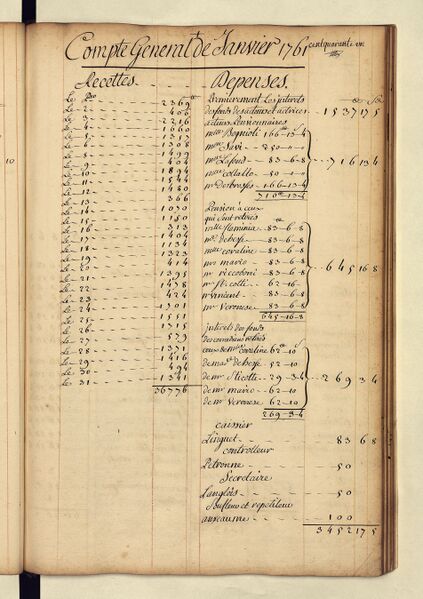 Compte General de Janvier 1761
cent quarante un
Recettes
Le 2 2369
Le 3 406
Le 4 2216
Le 5 1060
Le 6 1357
Le 8 1308
Le 9 1499
Le 10 404
Le 11 1896
Le 12 1544
Le 13 1480
366
Le 14 1070
Le 15 1180
Le 16 313
Le 17 1404
Le 18 1134
Le 19 1323
Le 20 414
Le 21 1395
Le 22 1478
Le 23 424
Le 24 1301
Le 25 1551
Le 26 1715
Le 27 579
Le 28 1371
Le 29 1416
Le 30 494
Le 31 1341
36776
Depenses
Premierement Les interets
des fonds des acteurs et actrices 1537 17 5
acteurs Pensionnaires
Mlle Bognioli 166 13 4
Mlle Savi 250 0 0
Mlle Lafond 83 6 8
Mlle Collalto 50 0 0
Mr Desbrosses 166 13 4
716 13 4
716 13 4
Pension à ceux
qui sont retirés
Mlle flaminia 83 6 8
Mme dehesse 83 6 8
Mlle coraline 83 6 8
Mr mario 83 6 8
Mr riccoboni 83 6 8
Mr sticolti 62 10
Mr vincent 83 6 8
Mr Veronese 83 6 8
645 16 8
645 16 8
interets des fonds
des comediens retirés
ceux de Mlle coraline 62 10
de Mme dehesse 52 10
de Mr Sticotti 29 3 4
de Mr mario 62 10
de Mr Veronese 62 10
269 3 4
269 3 4
caissier
Linguet 83 6 8
controlleur
Petronne 50
Secretaire
Langlois 50
Soufleur et repetiteur
anseaume 100
3452 17 5
10